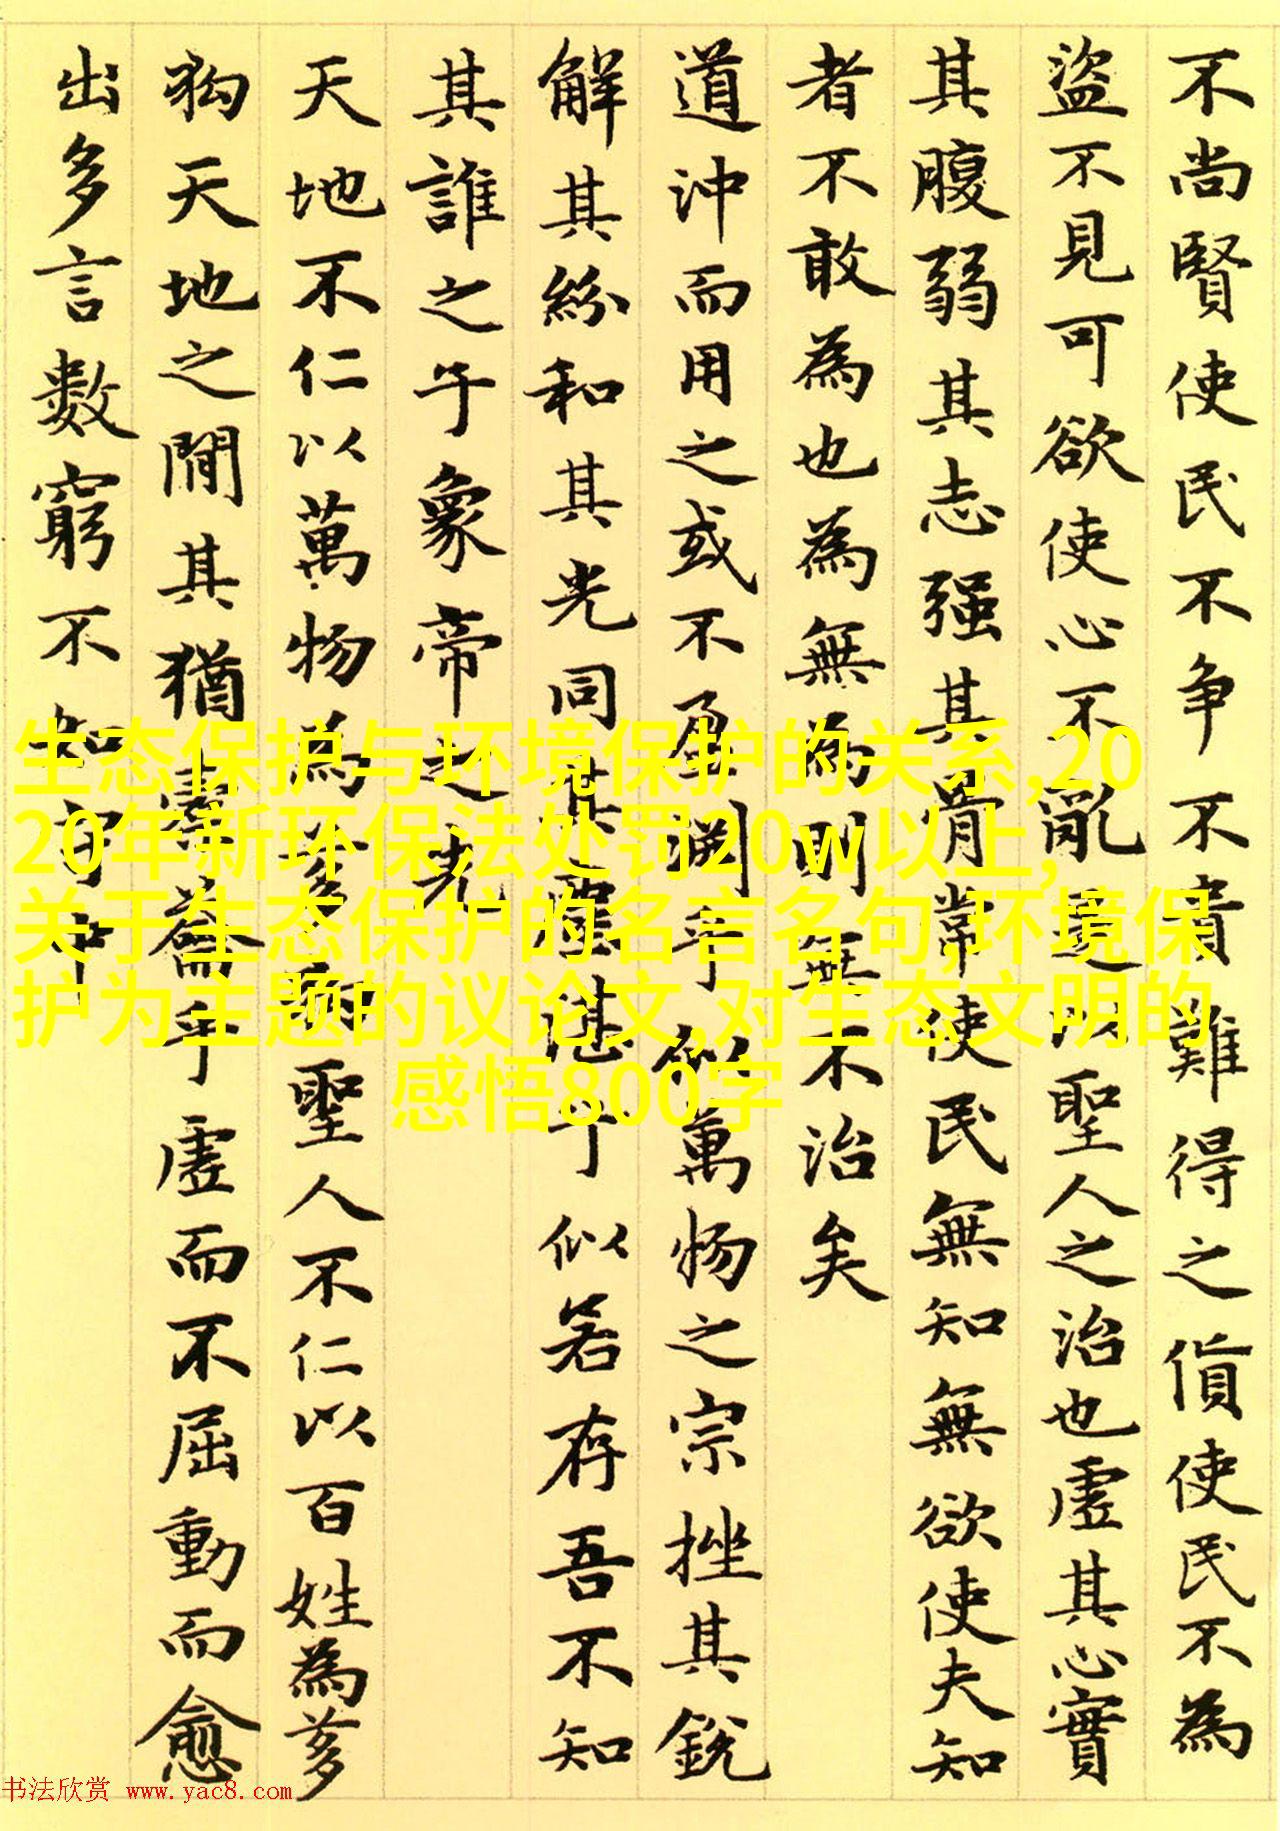 不尚賢使民不争不貴難得之貨使民不為
盜不見可欲使心不亂是以聖人之治也虛其心實
其腹弱其志强其骨常使民無知無欲使夫知
者不敢為也為無為則無不治矣
道沖而用之或不盈渊乎似萬物之宗挫其銳
解其紛和其光同其塵湛乎似若存吾不知
其誰之子象帝之先
天地不仁以萬物為芻狗聖人不仁以百姓為芻
狗天地之間其猶橐籥乎虛而不屈動而愈
出多言數窮不如守中
生态保护与环境保护的关系,20
20年新环保法处罚20w以上,
关于生态保护的名言名句,环境保
护为主题的议论文,对生态文明的
感悟800字
书法欣赏 www.yac8.com